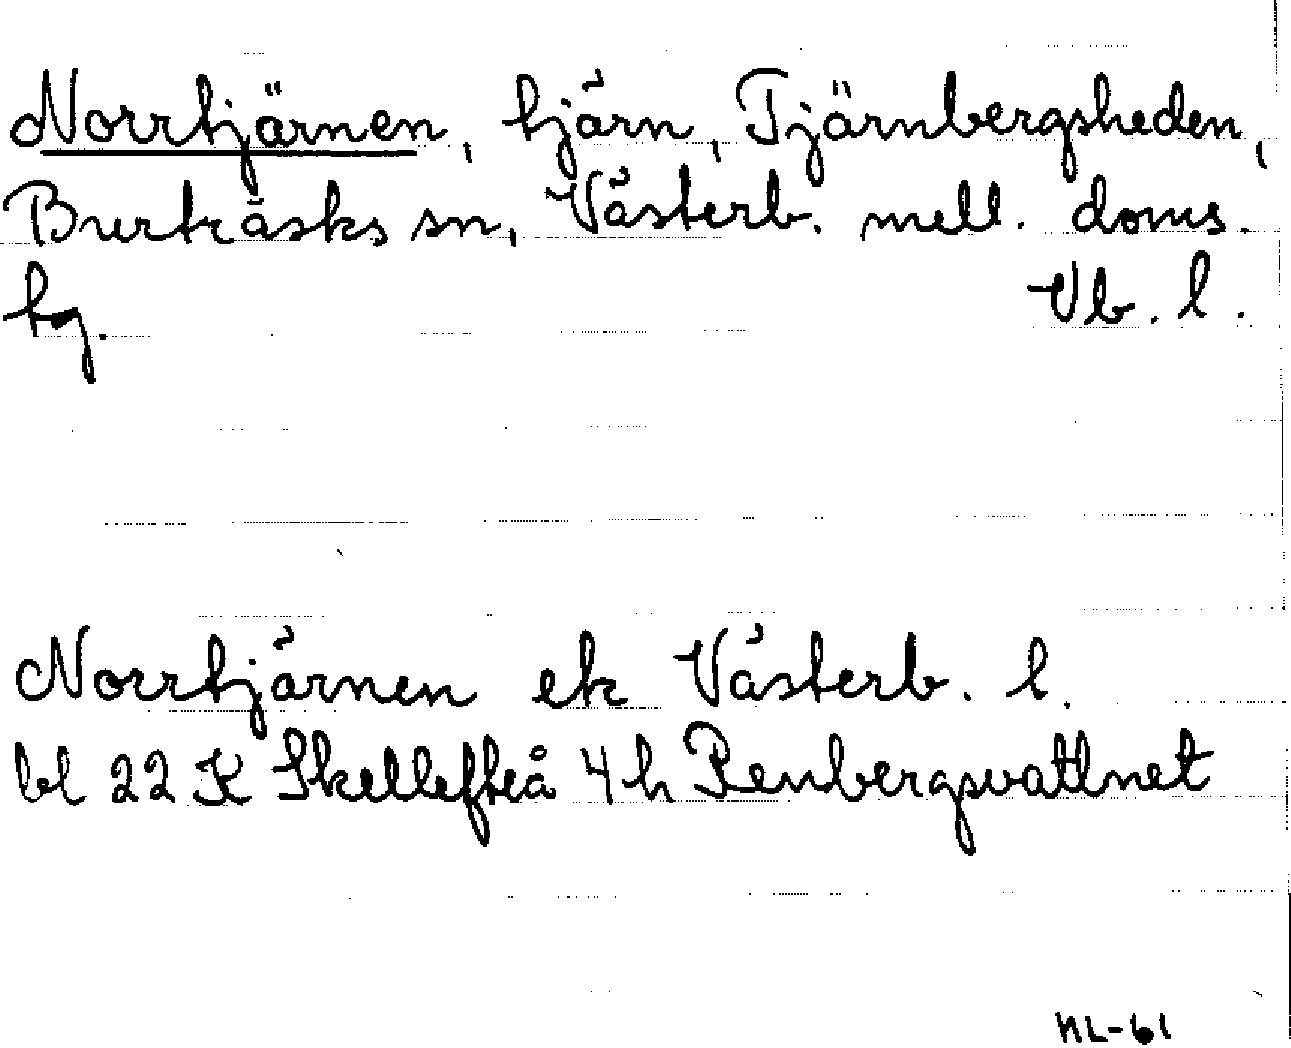 Norrtjärnen, tjärn, Tjärnbergsheden,
Burträsks sn, Västerb. mell. doms.
tg. Vb. l.
Norrtjärnen ek Västerb. l.
bl 22 K Skellefteå 4 h Renbergsvattnet
NL-61